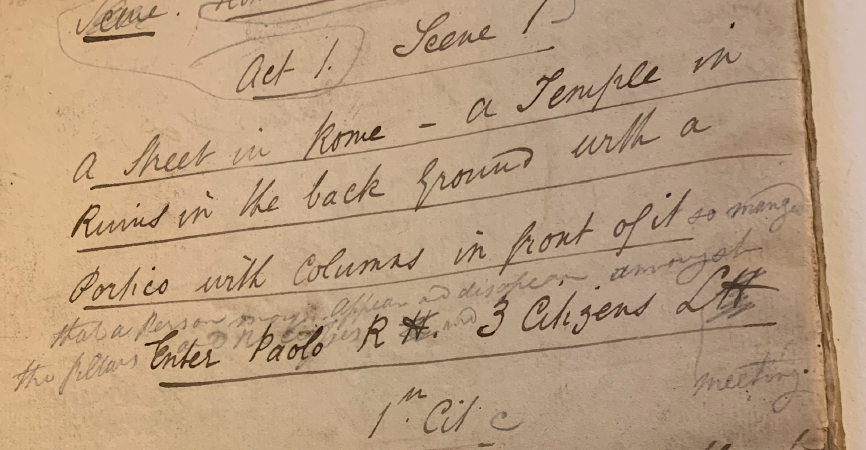 Scene.
Act 1. Scene 1
A Street in Rome - a Temple in
Ruins in the back Ground with a
Portico with Columns in front of it so manged
that a Person may Appear and disappear amongst
the pillars
Enter Paolo R H. and 3 Citizens L H
meeting.
1st. Cit